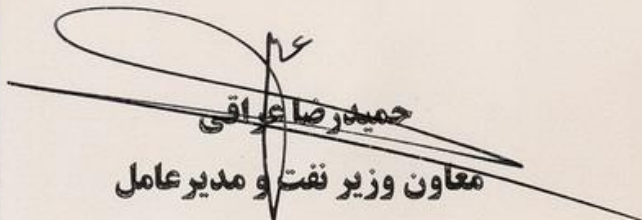 حمیدرضا عراقی
معاون وزیر نفت و مدیرعامل